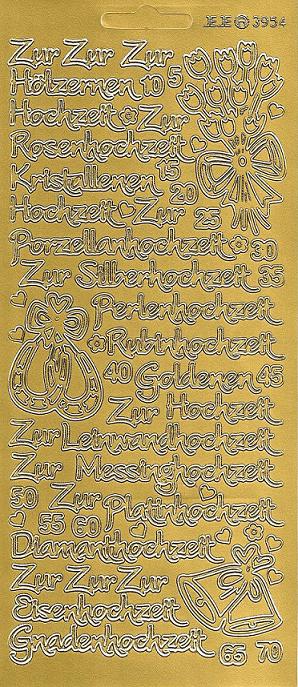 JEJE 3954
Zur Zur Zur
Hölzernen 10 5
Hochzeit Zur
Rosenhochzeit
Kristallenen 15
20
Hochzeit Zur 25
Porzellanhochzeit 30
Zur Silberhochzeit 35
Perlenhochzeit
Rubinhochzeit
40 Goldenen 45
Zur Hochzeit
Zur Leinwandhochzeit
Zur Messinghochzeit
50 Zur Platinhochzeit
55 60
Diamanthochzeit
Zur Zur Zur
Eisenhochzeit
Gnadenhochzeit 65 70